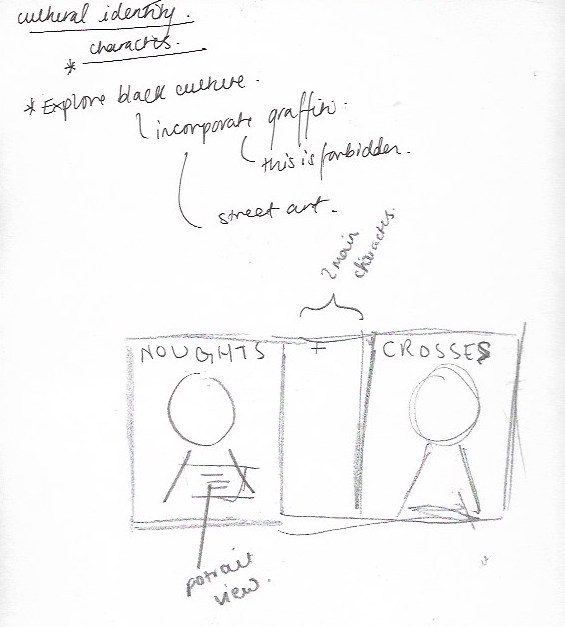 cultural identity.
* characters.
* Explore black culture.
incorporate graffiti.
this is forbidden.
street art.
2 main
characters.
NOUGHTS + CROSSES
potrait
view.